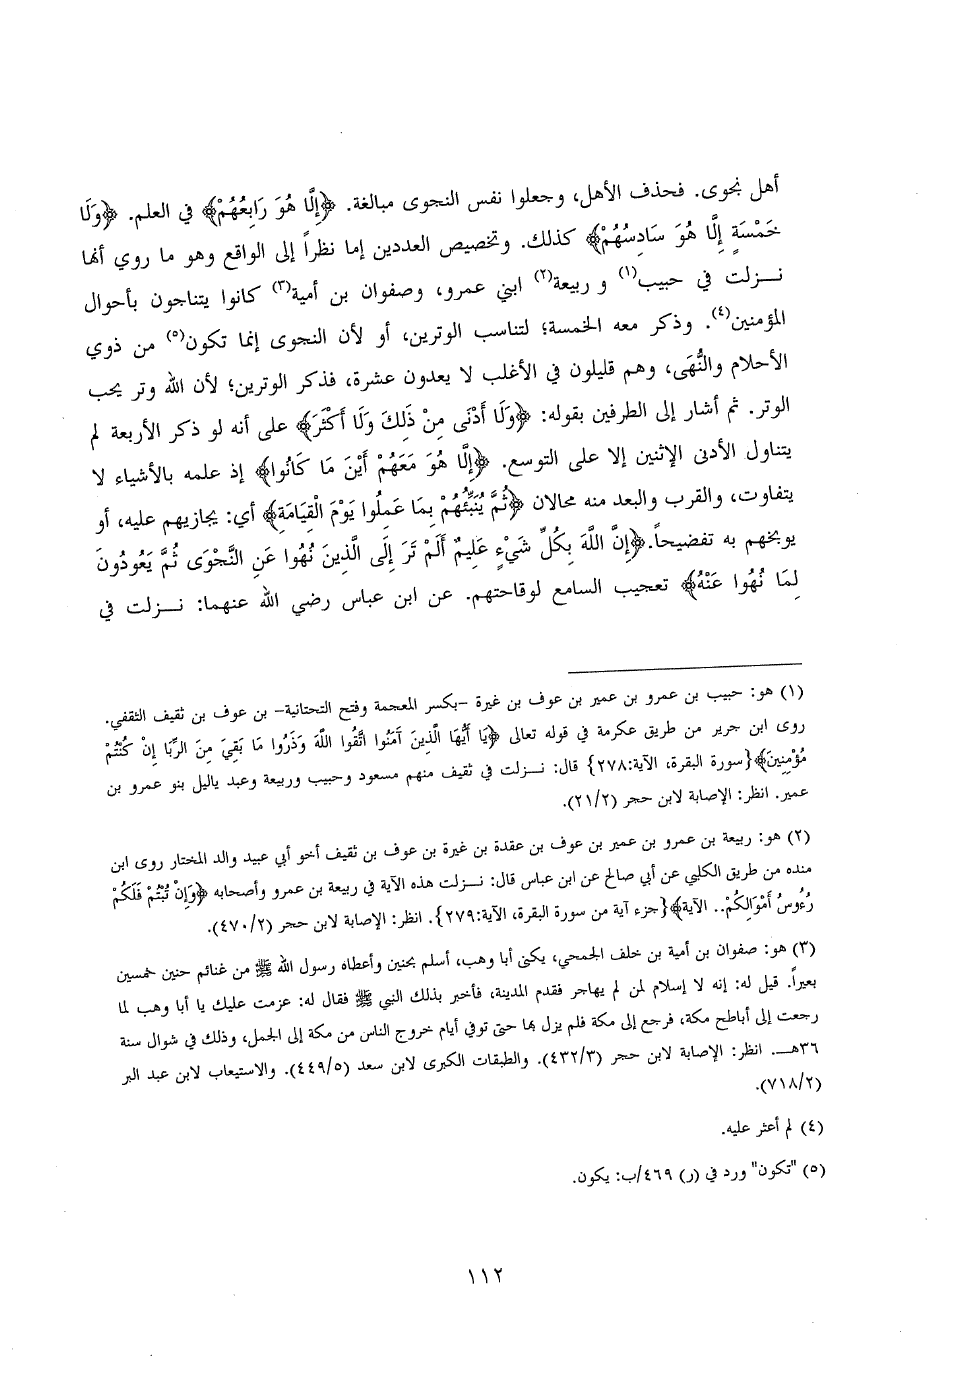 أهل نجوى. فحذف الأهل، وجعلوا نفس النجوى مبالغة. ﴿إِلَّا هُوَ رَابِعُهُمْ﴾ في العلم. ﴿وَلَا
خَمْسَةٍ إِلَّا هُوَ سَادِسُهُمْ﴾ كذلك. وتخصيص العددين إما نظراً إلى الواقع وهو ما روي أنها
نـزلت في حبيب(١) و ربيعة(٢) ابني عمرو، وصفوان بن أمية(٣) كانوا يتناجون بأحوال
المؤمنين(٤). وذكر معه الخمسة؛ لتناسب الوترين، أو لأن النجوى إنما تكون(٥) من ذوي
الأحلام والنُّهَى، وهم قليلون في الأغلب لا يعدون عشرة، فذكر الوترين؛ لأن الله وتر يحب
الوتر. ثم أشار إلى الطرفين بقوله: ﴿وَلَا أَدْنَى مِنْ ذَلِكَ وَلَا أَكْثَرَ﴾ على أنه لو ذكر الأربعة لم
يتناول الأدنى الإثنين إلا على التوسع. ﴿إِلَّا هُوَ مَعَهُمْ أَيْنَ مَا كَانُوا﴾ إذ علمه بالأشياء لا
يتفاوت، والقرب والبعد منه محالان ﴿ثُمَّ يُنَبِّئُهُمْ بِمَا عَمِلُوا يَوْمَ الْقِيَامَةِ﴾ أي: يجازيهم عليه، أو
يوبخهم به تفضيحاً.﴿إِنَّ اللَّهَ بِكُلِّ شَيْءٍ عَلِيمٌ أَلَمْ تَرَ إِلَى الَّذِينَ نُهُوا عَنِ النَّجْوَى ثُمَّ يَعُودُونَ
لِمَا نُهُوا عَنْهُ﴾ تعجيب السامع لوقاحتهم. عن ابن عباس رضي الله عنهما: نـزلت في
(١) هو: حبيب بن عمرو بن عمير بن عوف بن غيرة -بكسر المعجمة وفتح التحتانية- بن عوف بن ثقيف الثقفي.
روى ابن جرير من طريق عكرمة في قوله تعالى ﴿يَا أَيُّهَا الَّذِينَ آمَنُوا اتَّقُوا اللَّهَ وَذَرُوا مَا بَقِيَ مِنَ الرِّبَا إِنْ كُنْتُمْ
مُؤْمِنِينَ﴾{سورة البقرة، الآية:٢٧٨} قال: نـزلت في ثقيف منهم مسعود وحبيب وربيعة وعبد ياليل بنو عمرو بن
عمير. انظر: الإصابة لابن حجر (٢١/٢).
(٢) هو: ربيعة بن عمرو بن عمير بن عوف بن عقدة بن غيرة بن عوف بن ثقيف أخو أبي عبيد والد المختار روى ابن
منده من طريق الكلبي عن أبي صالح عن ابن عباس قال: نـزلت هذه الآية في ربيعة بن عمرو وأصحابه ﴿وَإِنْ تُبْتُمْ فَلَكُمْ
رُءُوسُ أَمْوَالِكُمْ.. الآية﴾{جزء آية من سورة البقرة، الآية:٢٧٩}. انظر: الإصابة لابن حجر (٤٧٠/٢).
(٣) هو: صفوان بن أمية بن خلف الجمحي، يكنى أبا وهب، أسلم بحنين وأعطاه رسول الله ﷺ من غنائم حنين خمسين
بعيراً. قيل له: إنه لا إسلام لمن لم يهاجر فقدم المدينة، فأخبر بذلك النبي ﷺ فقال له: عزمت عليك يا أبا وهب لما
رجعت إلى أباطح مكة، فرجع إلى مكة فلم يزل بها حتى توفي أيام خروج الناس من مكة إلى الجمل، وذلك في شوال سنة
٣٦هـ. انظر: الإصابة لابن حجر (٤٣٢/٣). والطبقات الكبرى لابن سعد (٤٤٩/٥). والاستيعاب لابن عبد البر
(٧١٨/٢).
(٤) لم أعثر عليه.
(٥) "تكون" ورد في (ر) ٤٦٩/ب: يكون.
١١٢